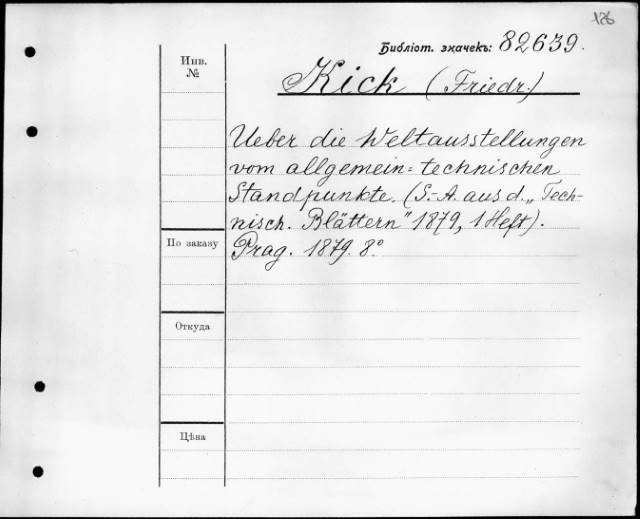 126
Библіот. значекъ: 82639.
Инв.
№
Kick (Friedr.)
Ueber die Weltausstellungen
vom allgemein=technischen
Standpunkte. (S.-A. aus d. „Tech-
nisch. Blättern" 1879, 1 Heft).
По заказу
Prag. 1879. 8°
Откуда
Цѣна